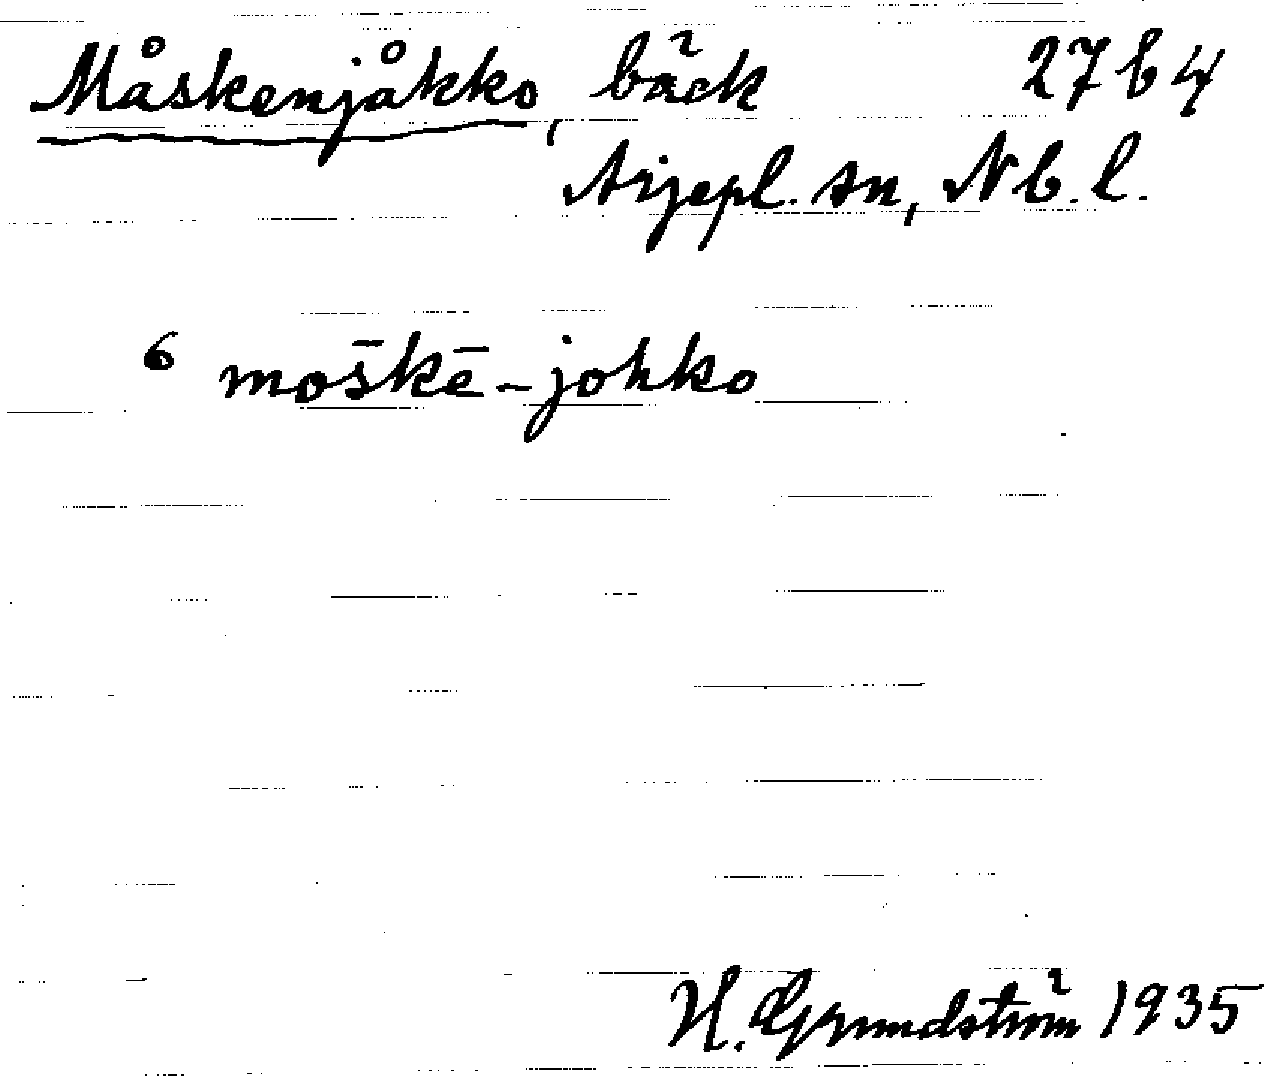 Måskenjåkko, bäck 27b4
Arjepl. sn, Nb. l.
6 mos̄kē-johko
H. Grundström 1935